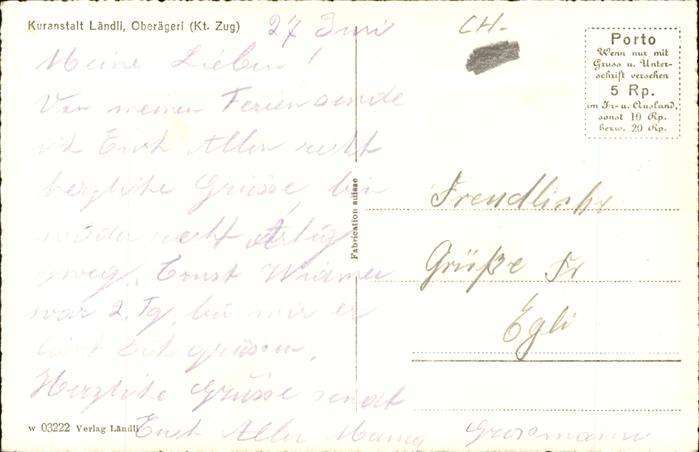 Kuranstalt Ländli, Oberägeri (Kt. Zug)
27 Juni
CH-
Porto
Wenn nur mit
Gruss u. Unter-
schrift versehen
5 Rp.
im In- u. Ausland,
sonst 10 Rp.
bezw. 20 Rp.
Meine Lieben!
Von meinen Ferien sende
ich Euch Allen recht
herzliche Grüsse, bin
wieder recht
weg, Ernst Widmer
war 2. Tg. bei mir er
lässt Euch grüssen.
Herzliche Grüsse sendet
Euch Allen Mama
Grossmann
Fabrication suisse
Freudliche
Grüße Fr
Egli
w 03222 Verlag Ländli